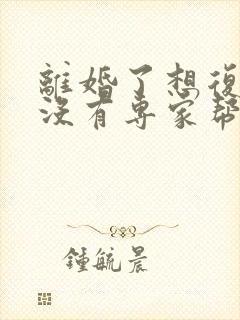 離婚了想復
沒有專家幫
鍾毓晨